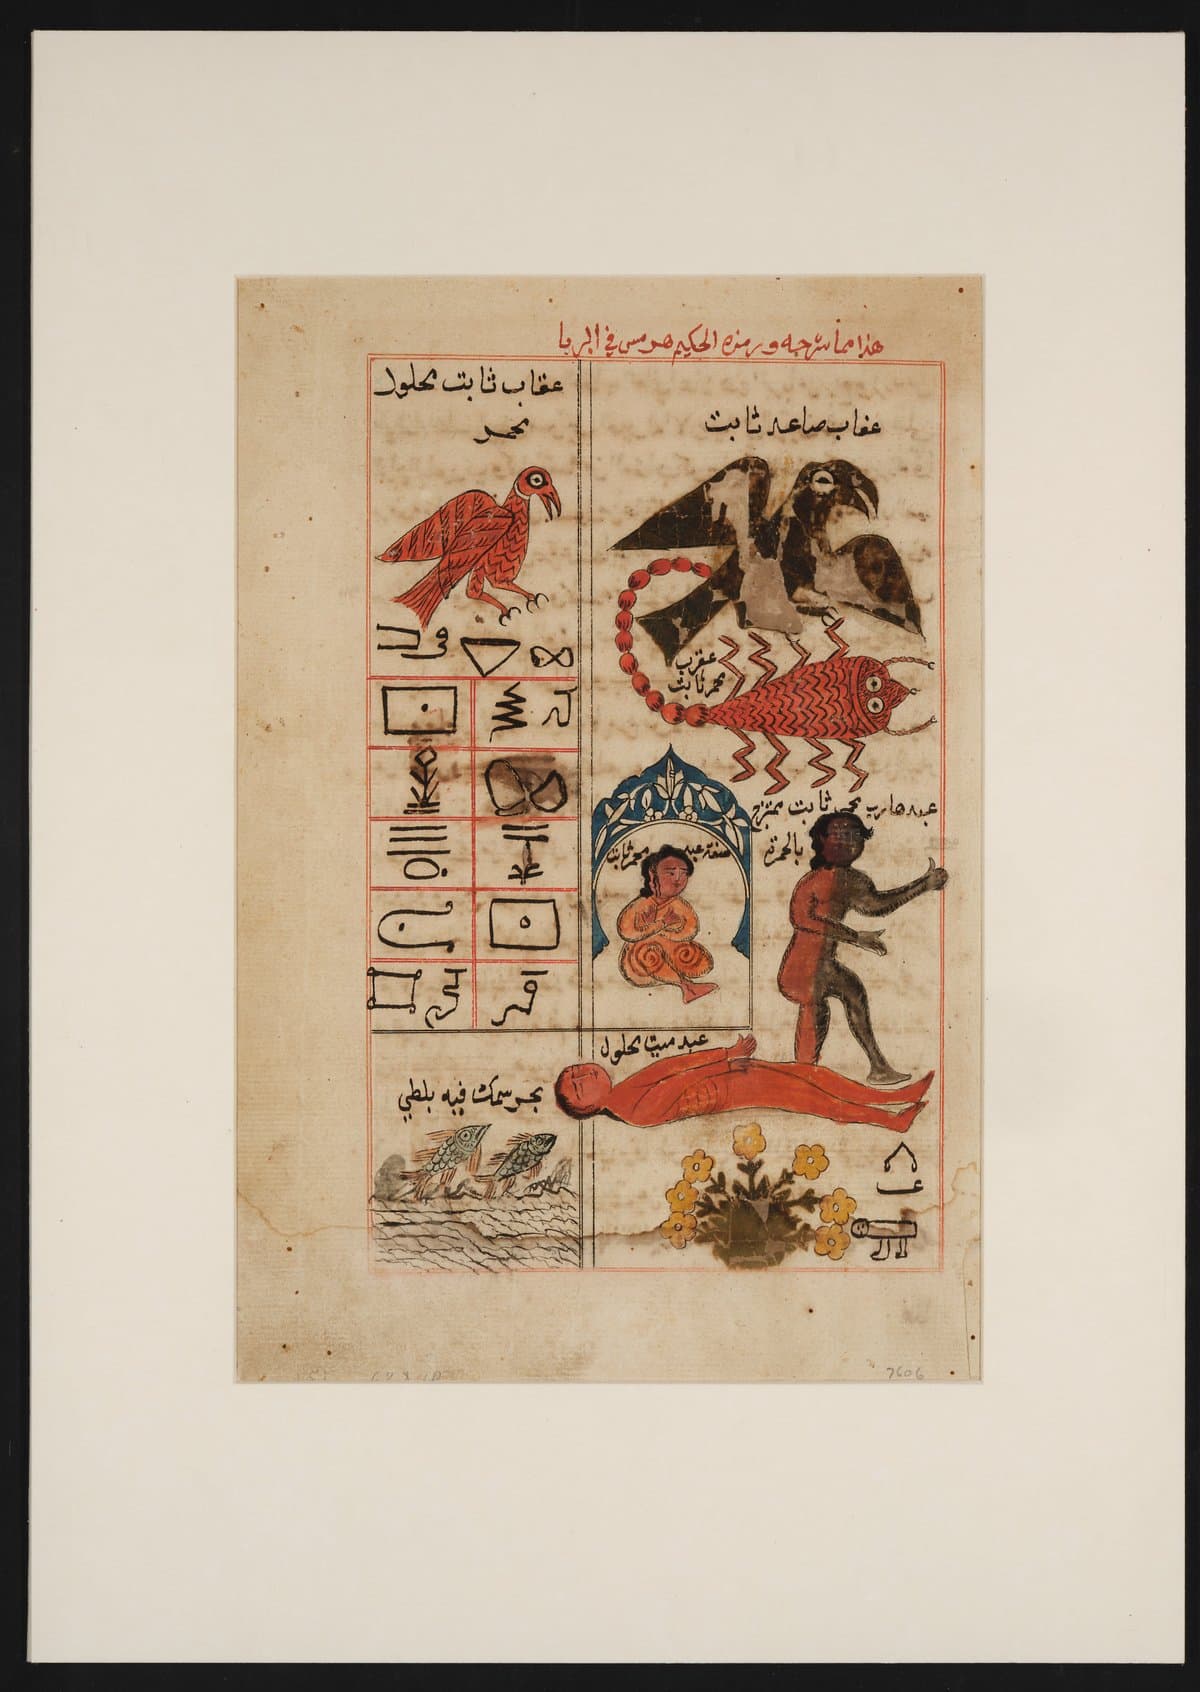 هذا مما شرحه ورمزه الحكيم هرمس في البربا
عقاب صاعد ثابت
عقرب
محمر ثابت
عبد هارب محي ثابت ممتزج
بالحمرة
صفة عبد محمر ثابت
عبد ميت محلول
عقاب ثابت محلول
محمر
بحر سمك فيه بلطي
7606